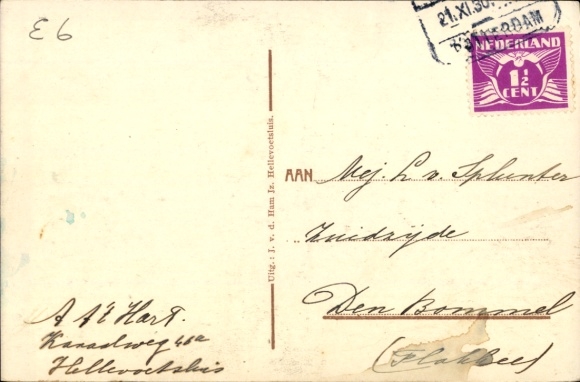 E 9
21.XI.30
ROTTERDAM
NEDERLAND
1½
CENT
Uitg.: J. v. d. Ham Jz. Hellevoetsluis.
AAN Mej. L. v. Splunter
Zuidzijde
Den Bommel
(Flakkee)
A 't Hart.
Kanaalweg 46a
Hellevoetsluis